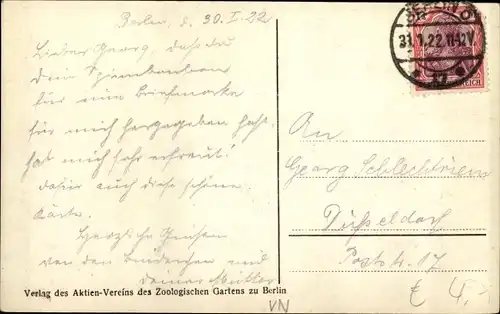 Berlin, d. 30.I.22
Lieber Georg, daß du
dein
für eine Briefmarke
für mich hergegeben hast,
hat mich sehr erfreut!
dafür auch diese schöne
Karte.
Herzliche Grüßen
von den Brüderchen und
deiner Mutter
Verlag des Aktien-Vereins des Zoologischen Gartens zu Berlin
VN
BERLIN
31.1.22.11-12V
An
Georg Schlechtriem
Düsseldorf
Poststr. 17
€ 4,-